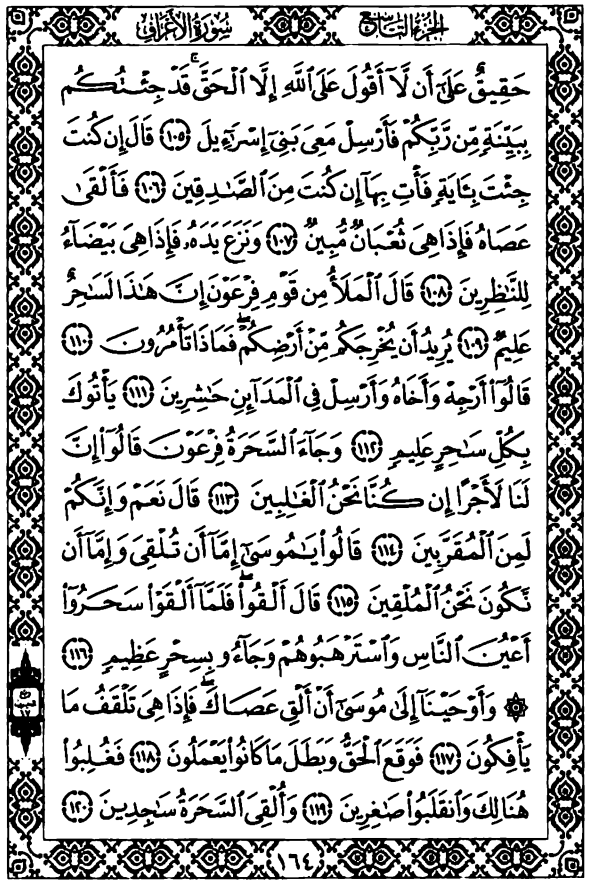 سُورَةُ الأَعْرَافِ الجُزْءُ التَّاسِعُ
حَقِيقٌ عَلَىٰٓ أَن لَّآ أَقُولَ عَلَى ٱللَّهِ إِلَّا ٱلْحَقَّۚ قَدْ جِئْتُكُم
بِبَيِّنَةٍ مِّن رَّبِّكُمْ فَأَرْسِلْ مَعِىَ بَنِىٓ إِسْرَٰٓءِيلَ ١٠٥ قَالَ إِن كُنتَ
جِئْتَ بِـَٔايَةٍ فَأْتِ بِهَآ إِن كُنتَ مِنَ ٱلصَّٰدِقِينَ ١٠٦ فَأَلْقَىٰ
عَصَاهُ فَإِذَا هِىَ ثُعْبَانٌ مُّبِينٌ ١٠٧ وَنَزَعَ يَدَهُۥ فَإِذَا هِىَ بَيْضَآءُ
لِلنَّٰظِرِينَ ١٠٨ قَالَ ٱلْمَلَأُ مِن قَوْمِ فِرْعَوْنَ إِنَّ هَٰذَا لَسَٰحِرٌ
عَلِيمٌ ١٠٩ يُرِيدُ أَن يُخْرِجَكُم مِّنْ أَرْضِكُمْۖ فَمَاذَا تَأْمُرُونَ ١١٠
قَالُوٓا۟ أَرْجِهْ وَأَخَاهُ وَأَرْسِلْ فِى ٱلْمَدَآئِنِ حَٰشِرِينَ ١١١ يَأْتُوكَ
بِكُلِّ سَٰحِرٍ عَلِيمٍ ١١٢ وَجَآءَ ٱلسَّحَرَةُ فِرْعَوْنَ قَالُوٓا۟ إِنَّ
لَنَا لَأَجْرًا إِن كُنَّا نَحْنُ ٱلْغَٰلِبِينَ ١١٣ قَالَ نَعَمْ وَإِنَّكُمْ
لَمِنَ ٱلْمُقَرَّبِينَ ١١٤ قَالُوا۟ يَٰمُوسَىٰٓ إِمَّآ أَن تُلْقِىَ وَإِمَّآ أَن
نَّكُونَ نَحْنُ ٱلْمُلْقِينَ ١١٥ قَالَ أَلْقُوا۟ۖ فَلَمَّآ أَلْقَوْا۟ سَحَرُوٓا۟
أَعْيُنَ ٱلنَّاسِ وَٱسْتَرْهَبُوهُمْ وَجَآءُو بِسِحْرٍ عَظِيمٍ ١١٦
۞ وَأَوْحَيْنَآ إِلَىٰ مُوسَىٰٓ أَنْ أَلْقِ عَصَاكَۖ فَإِذَا هِىَ تَلْقَفُ مَا
يَأْفِكُونَ ١١٧ فَوَقَعَ ٱلْحَقُّ وَبَطَلَ مَا كَانُوا۟ يَعْمَلُونَ ١١٨ فَغُلِبُوا۟
هُنَالِكَ وَٱنقَلَبُوا۟ صَٰغِرِينَ ١١٩ وَأُلْقِىَ ٱلسَّحَرَةُ سَٰجِدِينَ ١٢٠
١٦٤